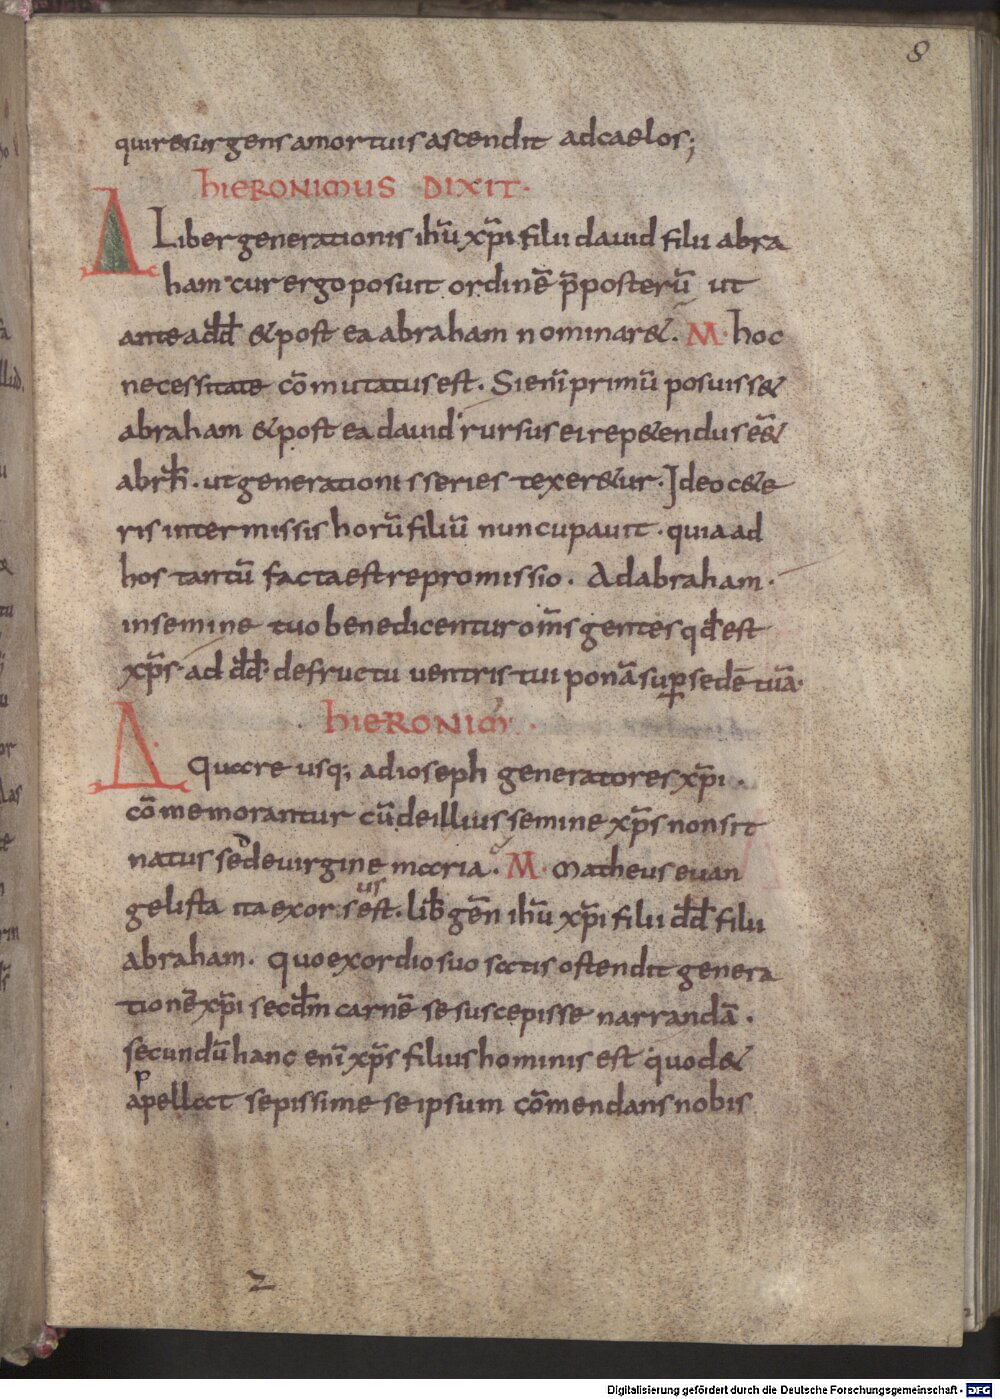 8
qui resurgens amortuis ascendit adcaelos;
hIERONIMUS DIXIT·
Δ Liber generationis ihū xp̄i filii dauid filii abra
ham· cur ergo posuit ordinē p̄posterū ut
ante add̄ & post ea abraham nominar&. M· hoc
necessitate cōmutatus est. Si enī primū posuiss&
abraham & post ea dauid rursus ei rep&endus eē&
abrħ. ut generationis series texer&ur. Ideo c&e
ris intermissis horū filiū nuncupauit · quia ad
hos tantū facta est repromissio. Ad abraham·
insemine tuo benedicentur om̄s gentes qđ est
xp̄s· ad dđ· defructu uentris tui ponā sup sedē tuā·
hIERONIM̄·
Δ Quare usq; adioseph generatores xp̄i ·
cōmemorantur cū deillius semine xp̄s non sit
natus sed deuirgine maria · M· Matheus euan
gelista ita exorsus est. lib̄ gēn ihū xp̄i filii dđ filii
abraham. Quo exordio suo satis ostendit genera
tionē xp̄i secđm carnē se suscepisse narrandā ·
secundū hanc enī xp̄s filius hominis est quod &
appellat sepissime se ipsum cōmendans nobis
2
Digitalisierung gefördert durch die Deutsche Forschungsgemeinschaft - DFG